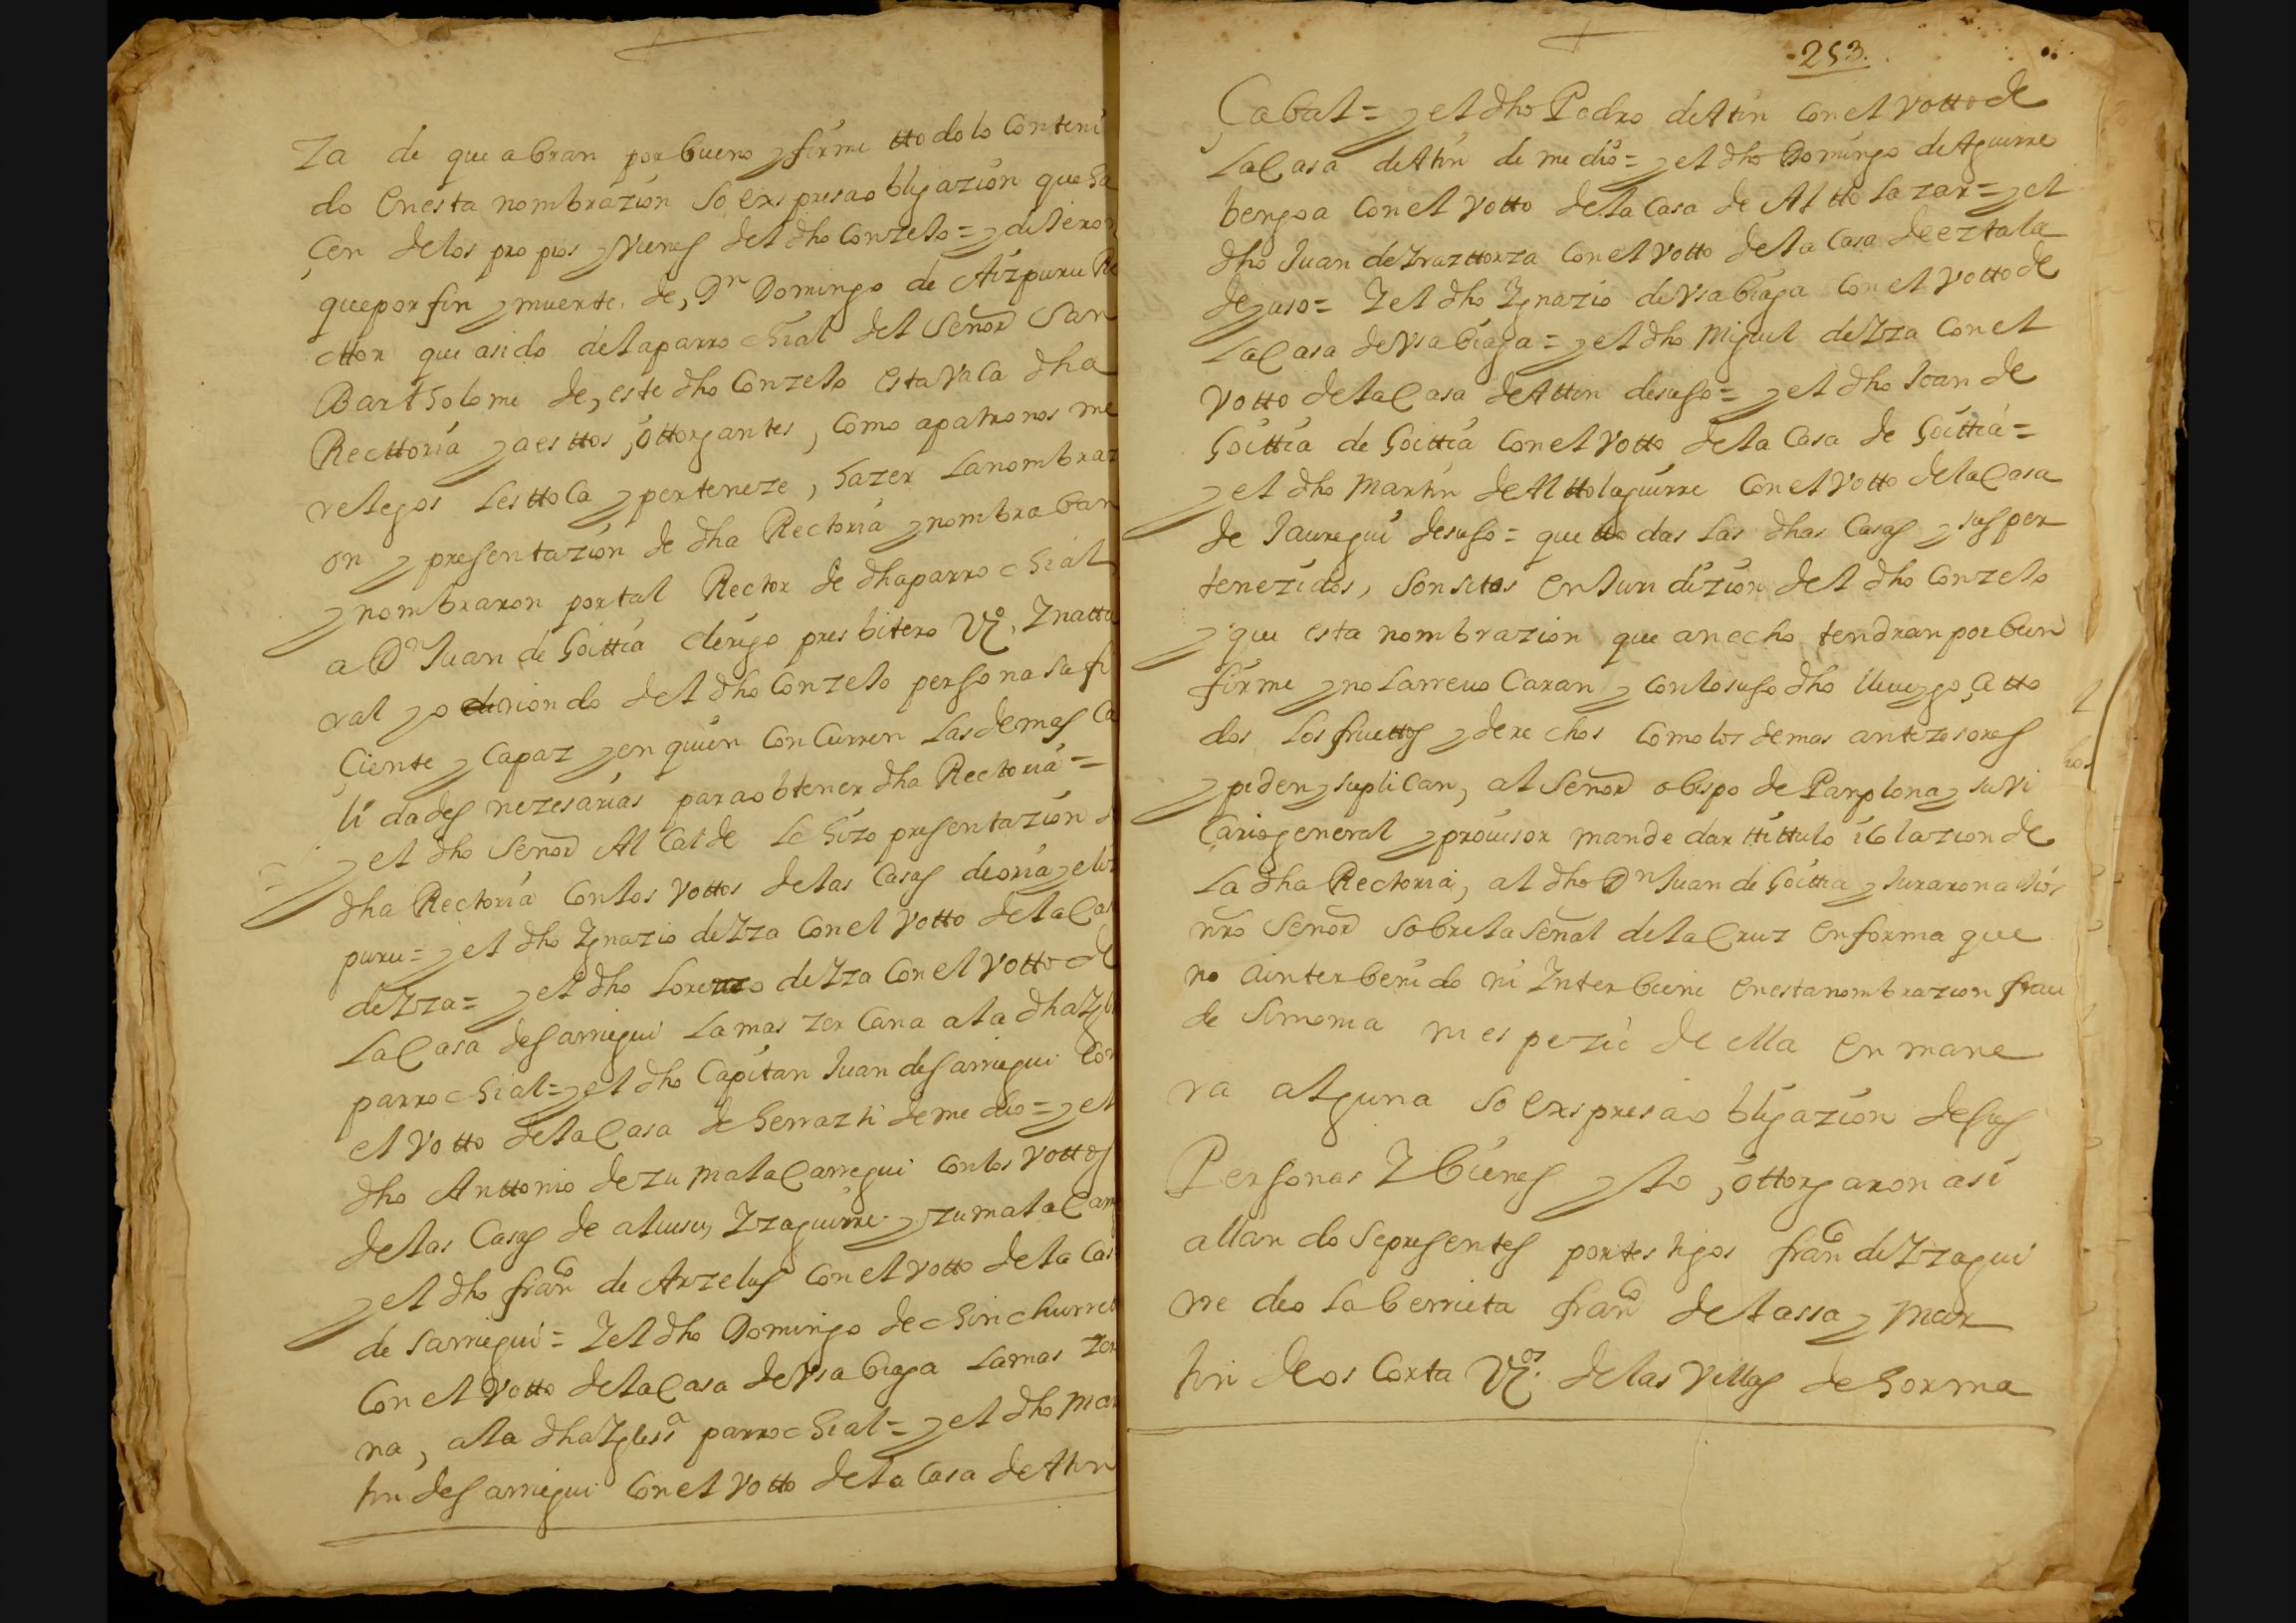 Za de que abran por bueno y firme ttodo lo conteni
do En esta nombrazion so exspresa obligazion que ha
çen de los propios y vienes del dho Conzejo = y dijeron
que por fin y muerte, de, Dn Domingo de Aizpuru Re
cttor que asido de la parrochial del Señor San
Bartholome de, este dho Conzejo esta vaca dha
Recttoria y a esttos, ottorgantes, como a patronos me
relegos les ttoca y perteneze, hazer la nombrazi
on y presentazion de dha Rectoria y nombraban
y nombraron por tal Rector de dha parrochial
a Dn Juan de Goittia clerigo presbitero Vº, Y natu
ral y oriundo del dho Conzejo persona sufi
çiente y capaz y en quien concurren las demas ca
lidades nezesarias para obtener dha Rectoria =
y el dho Señor Alcalde le hizo presentazion de
dha Rectoria con los vottos de las casas de oria y eliz
puru = y el dho Ygnazio de Yza con el votto de la Cas
de Yza = y el dho Lorenzo de Yza con el votto de
la Casa de Sarriegui la mas zercana a la dha Ygl
parrochial = y el dho Capitan Juan de Sarriegui con
el votto de la Casa de herrazti de medio = y el
dho Anttonio de zumalaCarregui con los vottos
de las Casas de Yzaguirre y zumalaCarre
y el dho franco de Arzelus con el votto de la Cas
de Sarriegui = Y el dho Domingo de chinchurret
Con el votto de la Casa de Vsabiaga la mas zer
na, a la dha Yglesia parrochial = y el dho Mar
tin de Sarriegui con el votto de la Casa de Atin
253.
Çabal = y el dho Pedro de Atin con el votto de
la Casa de Atin de medio = y el dho Domingo de Aguirre
bengoa con el votto de la Casa de Alttolazar = y el
dho Juan de Yrazttorza con el votto de la Casa de eztala
de yuso = Y el dho Ygnazio de Vsabiaga con el votto de
la Casa de Vsabiaga = y el dho Miguel de Yza con el
votto de la Casa de Attin de suso = y el dho Joan de
Goittia de Goittia con el votto de la Casa de Goittia =
y el dho Martin de Alttolaguirre con el votto de la Casa
de Jauregui de suso = que ttodas las dhas Casas y sus per
tenezidos, son sitos en Juridizion del dho Conzejo
y que esta nombrazion que an echo tendran por buen
firme y no la rreuoCaran y con lo suso dho lleue y goçe tto
dos los fruttos y derechos como los demas antezesores
y piden y suplican, al Señor obispo de Pamplona y su Vi
Cario general y prouisor mande dar ttittulo i Colazion de
la dha Rectoria, al dho Dn Juan de Goittia y Juraron a Dios
nro Señor sobre la señal de la Cruz en forma que
no a interbenido ni Interbiene en esta nombrazion frau
de simonia ni espezie de ella En mane
ra alguna so exspresa obligazion de sus
Personas Y bienes y lo, ottorgaron asi
allandose presentes por testigos franco de Yzagui
rre de olaberrieta franco de lassa y Mar
tin de os Corta Vos. de las villas de horma